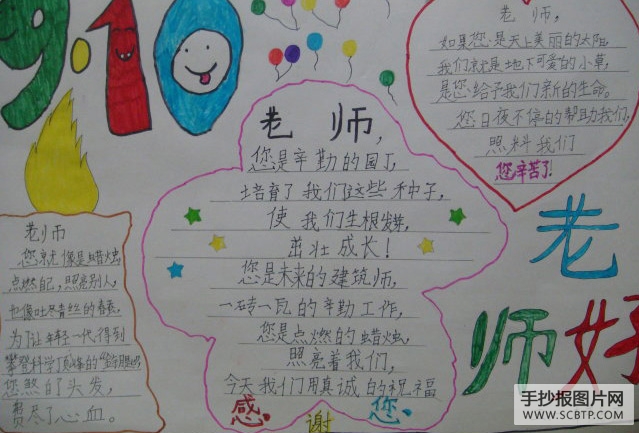 9.10
老师,
您是辛勤的园丁,
培育了我们这些种子,
使我们生根发芽,
茁壮成长!
您是未来的建筑师,
一砖一瓦的辛勤工作,
您是点燃的蜡烛,
照亮着我们,
今天我们用真诚的祝福
感谢您
老师,
如果您是天上美丽的太阳
我们就是地下可爱的小草,
是您给予我们新的生命。
您日夜不停的帮助我们,
照料我们
您辛苦了!
老师
您就像是蜡烛,
点燃自己,照亮别人,
也像吐尽青丝的春蚕,
为了让年轻一代得到
攀登科学顶峰的
您熬白了头发,
费尽了心血。
老师好
手抄报图片网
WWW.SCBTP.COM